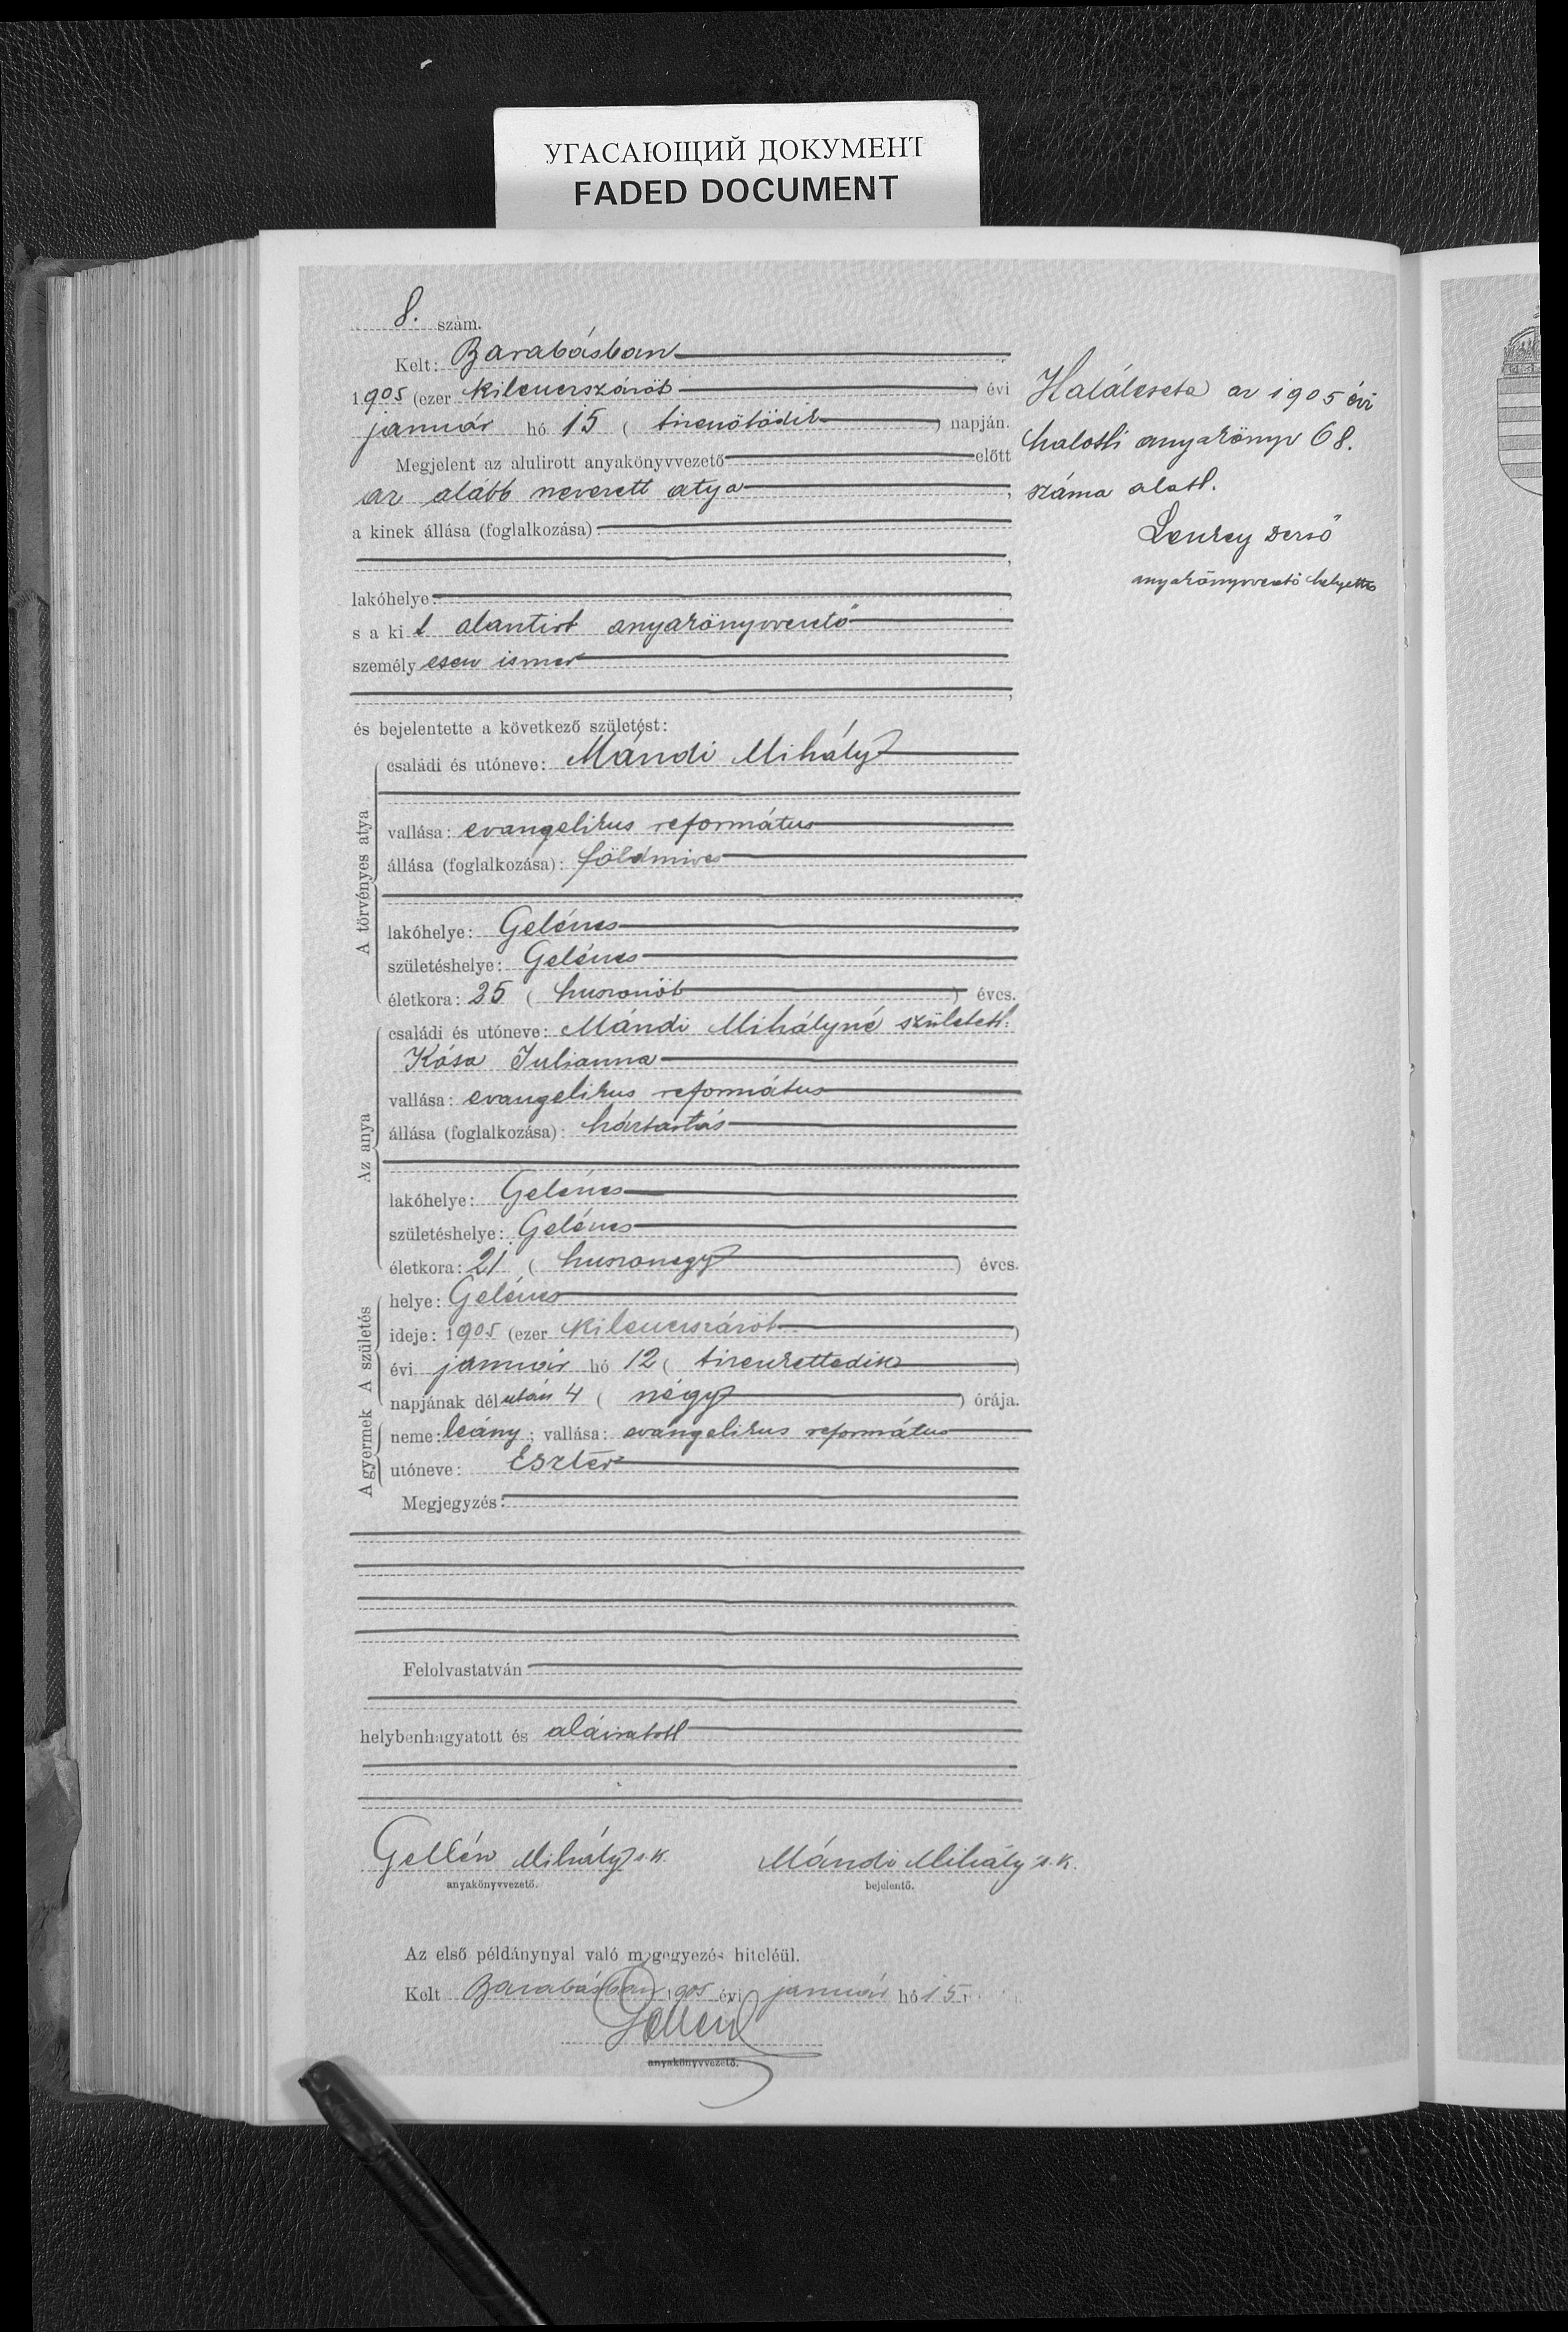 УГАСАЮЩИЙ ДОКУМЕНТ
FADED DOCUMENT
8. szám.
Kelt: Barabásban
1905 (ezer kilenczszázöt ) évi
január hó 15 ( tizenötödik ) napján.
Megjelent az alulirott anyakönyvvezető előtt
az alább nevezett atya,
a kinek állása (foglalkozása):
lakóhelye:
s a kit alantirt anyakönyvvezető
személyesen ismer
és bejelentette a következő születést:
A törvényes atya
családi és utóneve: Mándi Mihály
vallása: evangelikus református
állása (foglalkozása): földmives
lakóhelye: Gelénes
születéshelye: Gelénes
életkora: 25 ( huszonöt ) éves.
Az anya
családi és utóneve: Mándi Mihályné született:
Kósa Julianna
vallása: evangelikus református
állása (foglalkozása): háztartás
lakóhelye: Gelénes
születéshelye: Gelénes
életkora: 21 ( huszonegy ) éves.
A születés
helye: Gelénes
ideje: 1905 (ezer kilenczszázöt )
évi január hó 12 ( tizenkettedik )
napjának délután 4 ( négy ) órája.
A gyermek
neme: leány; vallása: evangelikus református
utóneve: Eszter
Megjegyzés:
Felolvastatván
helybenhagyatott és aláiratott
Gellén Mihály s.k. Mándi Mihály s.k.
anyakönyvvezető. bejelentő.
Az első példánynyal való megegyezés hiteléül.
Kelt Barabásban 1905 évi január hó 15
Gellén
anyakönyvvezető.
Halálesete az 1905 évi
halotti anyakönyv 68.
száma alatt.
Dezső
anyakönyvvezető helyettes